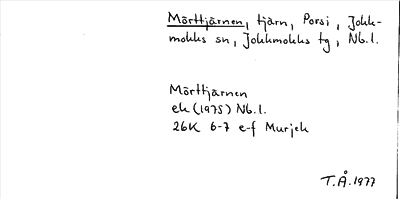 Mörttjärnen, tjärn, Porsi, Jokk-
mokks sn, Jokkmokks tg, Nb.l.
Mörttjärnen
ek (1975) Nb.l.
26K 6-7 e-f Murjek
T.Å. 1977